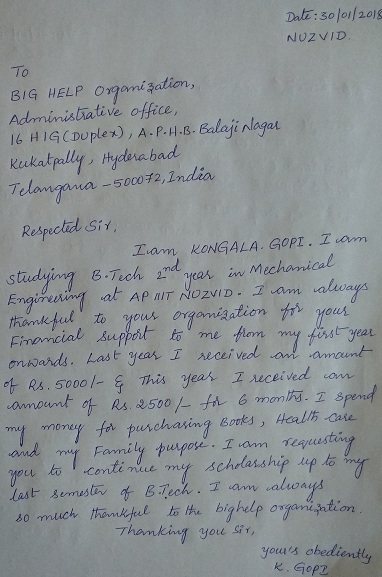 Date: 30/01/2018
NUZVID.
To
BIG HELP Organization,
Administrative office,
16 HIG (Duplex), A.P.H.B. Balaji Nagar
Kukatpally, Hyderabad
Telangana - 500072, India
Respected Sir,
I am KONGALA. GOPI. I am
studying B.Tech 2nd year in Mechanical
Engineering at AP IIIT NUZVID. I am always
thankful to your organization for your
Financial support to me from my first year
onwards. Last year I received an amount
of Rs. 5000/- & This year I received an
amount of Rs. 2500/- for 6 months. I spend
my money for purchasing Books, Health care
and my Family purpose. I am requesting
you to continue my scholarship up to my
last semester of B.Tech. I am always
so much thankful to the bighelp organization.
Thanking you sir,
your's obediently
K. GOPI